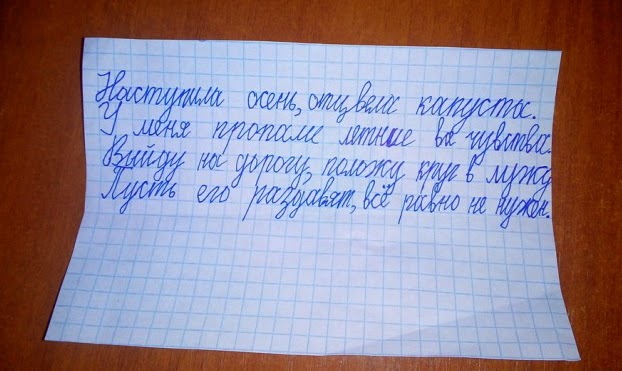 Наступила осень, отцвела капуста.
У меня пропали летние ва чувства.
Выйду на дорогу, положу круг в лужу
Пусть его раздавят, всё равно не нужен.